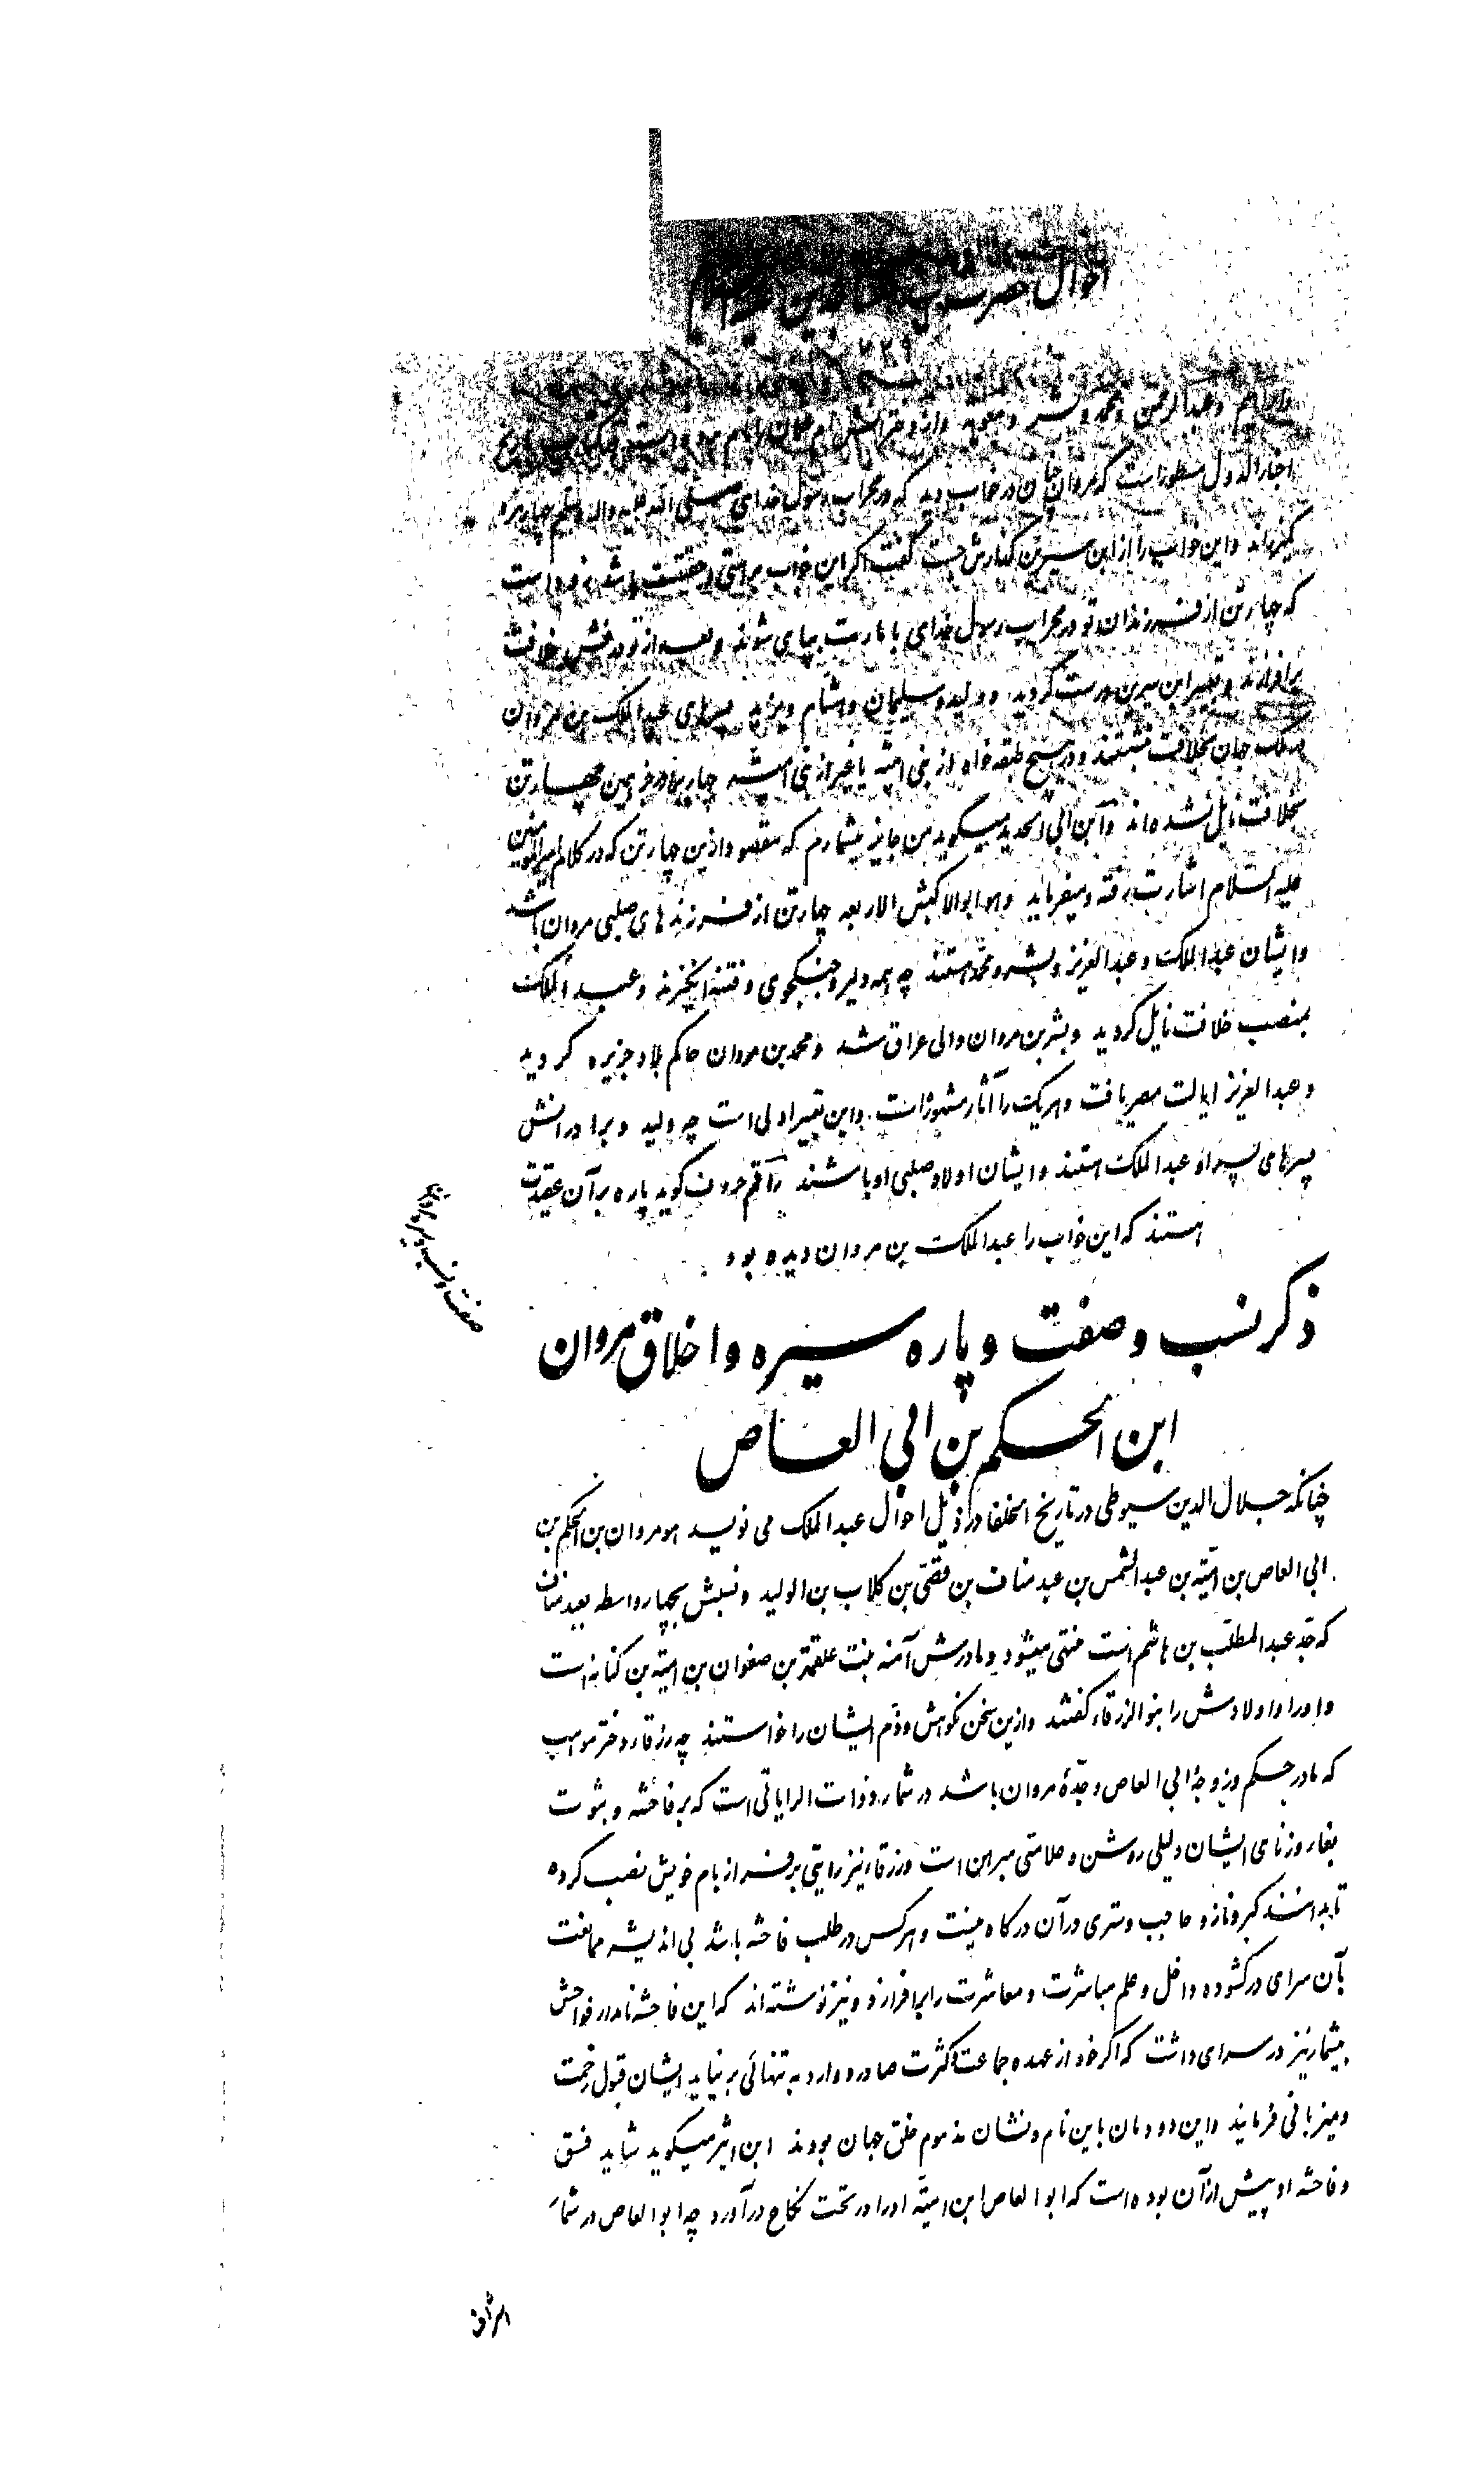 احوال حضرت
۴۲۹
وابراهیم وعبدالرحمن ومحمد وبشر ومعویه واز دخترانش ام
اخبار الدول مسطور است که مروان چنان در خواب دید که در محراب رسول خدای صلی الله علیه واله وسلم چهار مرة
کمیز راند واین خواب را از ابن سیرین گذارش جست گفت اگر این خواب براستی وحقیقت باشد
که چهار تن از فرزندان تو در محراب رسول خدای با مارت بپای شوند وبعد از تو درفش خلافت
برافرازند وتعبیر ابن سیرین درست گردید، وولید وسلیمان وهشام ویزید پسرهای عبد الملک بن مروان
جهان بخلافت بنشستند ودر هیچ طبقه خواه از بنی امیّه یا غیر از بنی امیّه چار برادر جز این چهار تن
بخلافت نایل نشده اند وابن ابی الحدید میگوید من جایز میشمارم که مقصود ازین چهار تن که در کلام امیر المؤمنین
علیه السلام اشارت رفته ومیفرماید وهو ابوالاکبش الاربعه چهار تن از فرزندهای صلبی مروان باشد
وایشان عبد الملک وعبد العزیز وبشر ومحمد هستند چه همه دلیر وجنگجوی وفتنه انگیزند وعبد الملک
بمنصب خلافت نایل گردید وبشر بن مروان والی عراق شد ومحمد بن مروان حاکم بلاد جزیره گردید
وعبد العزیز ایالت مصر یافت وهریک را آثار مشهوره است واین تعبیر اولی است چه ولید وبرادرانش
پسرهای پسر او عبد الملک هستند وایشان اولاد صلبی او باشند راقم حروف گوید پاره بر آن عقیدت
هستند که این خواب را عبد الملک بن مروان دیده بود
صفت ونسب
ذکر نسب وصفت وپاره سیره واخلاق مروان
ابن الحکم بن ابی العاص
چنانکه جلال الدین سیوطی در تاریخ الخلفا در ذیل احوال عبد الملک می نویسد هو مروان بن الحکم بن
ابی العاص بن امیّه بن عبد الشمس بن عبد مناف بن قصّی بن کلاب بن الولید ونسبش بچهار واسطه بعبد مناف
که جدّ عبد المطلّب بن هاشم است منتهی میشود ومادرش آمنه بنت علقمة بن صفوان بن امیّه بن کنانه است
واو را واولادش را بنو الزرقاء گفتند وازین سخن نکوهش وذم ایشان را خواستند چه زرقاء دختر موهب
که مادر حکم وزوجهٔ ابی العاص وجدّهٔ مروان باشد در شمار ذوات الرایاتی است که بر فاحشه وثبوت
بغاء وزنای ایشان دلیلی روشن وعلامتی مبرهن است وزرقاء نیز رایتی بر فراز بام خویش نصب کرده
تا بدانند کبر وناز وحاجب وستری در آن درگاه نیست وهر کس در طلب فاحشه باشد بی اندیشه ممانعت
بآن سرای در گشوده داخل وعلم مباشرت ومعاشرت را برافرازد ونیز نوشته اند که این فاحشه نامدار فواحش
بیشمار نیز در سرای داشت که اگر خود از عهده جماعت وکثرت صادر ووارد به تنهائی بر نیاید ایشان قبول زحمت
ومیزبانی فرمایند واین دودمان باین نام ونشان مذموم خلق جهان بودند ابن اثیر میگوید شاید فسق
وفاحشه او پیش از آن بوده است که ابو العاص ابن امیّه او را در تحت نکاح در آورد چه ابو العاص در شمار
اشراف